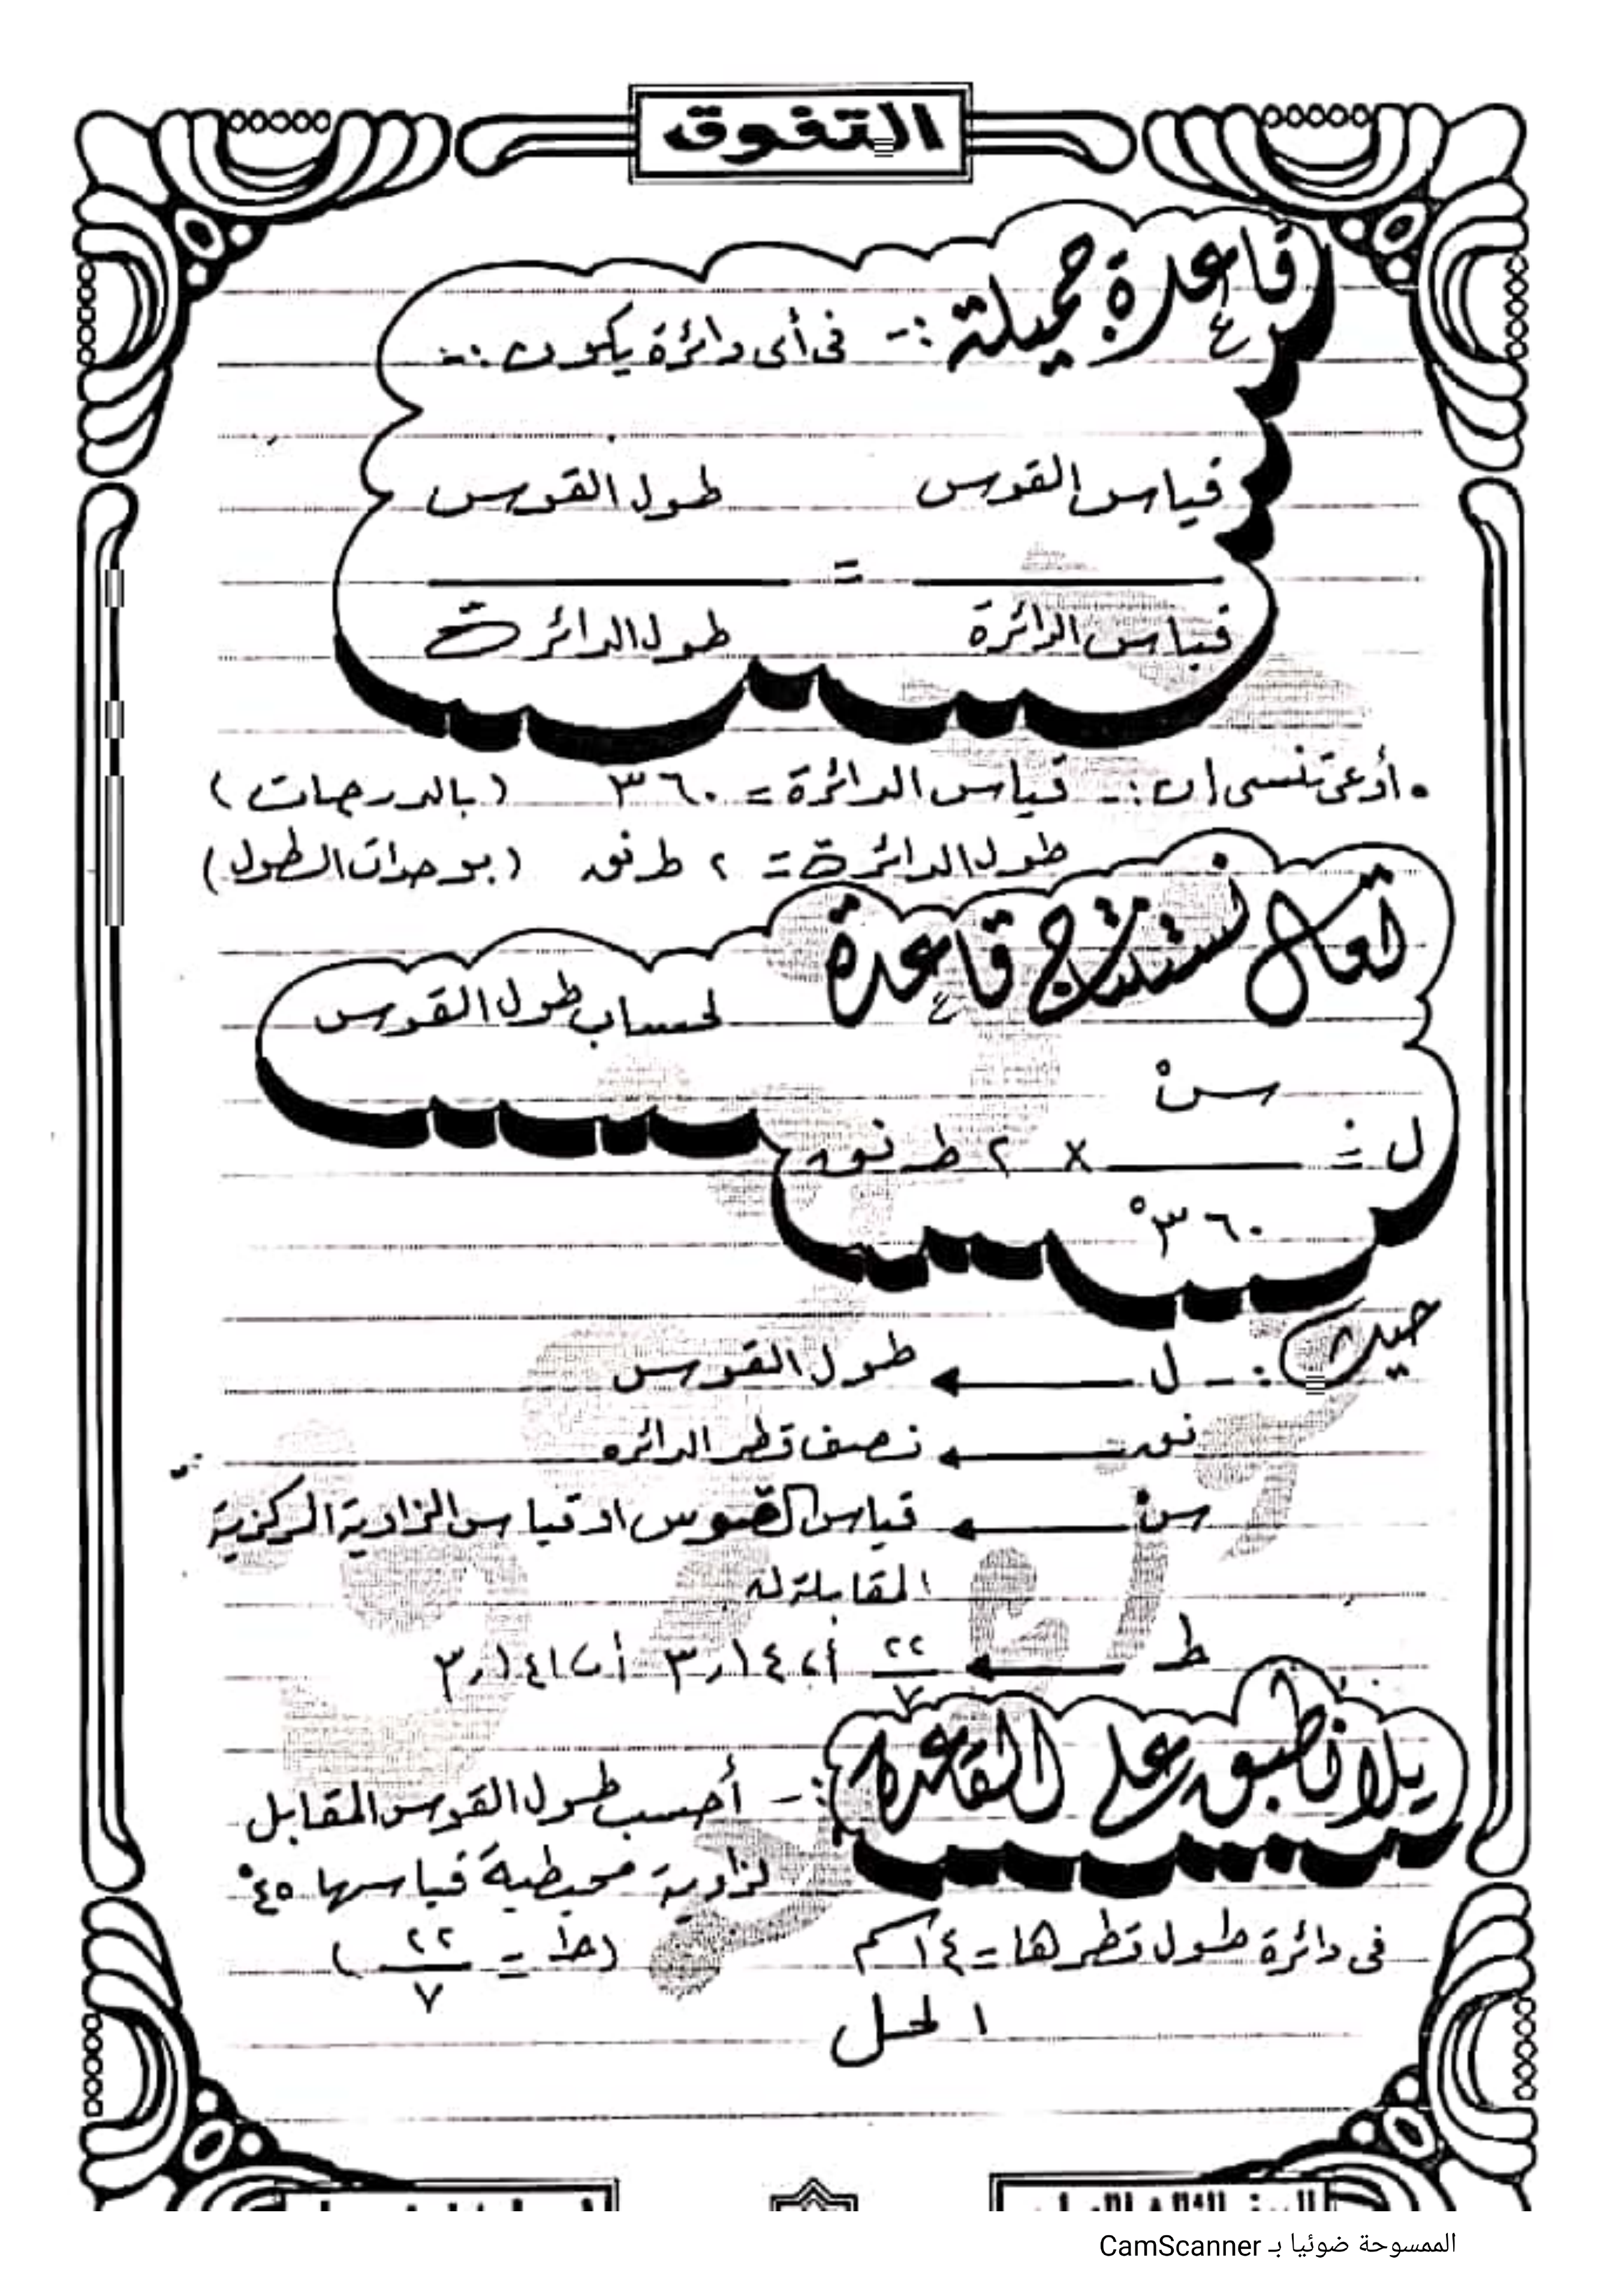 التفوق
قاعدة جميلة :- فى أى دائرة يكون :-
قياس القوس طول القوس
=
قياس الدائرة طول الدائرة
• أوعى تنسى إن :- قياس الدائرة = ٣٦٠ (بالدرجات)
طول الدائرة = ٢ ط نق (بوحدات الطول)
تعال نستنتج قاعدة لحساب طول القوس
س°
ل = × ٢ ط نق
٣٦٠°
حيث :- ل ← طول القوس
نق ← نصف قطر الدائره
س° ← قياس القوس او قياس الزاوية المركزية
المقابلة له
ط ← ٢٢/٧ أ، ٣,١٤ أ، ٣,١٤١٢
يلا نطبق على القاعدة :- أحسب طول القوس المقابل
لزاوية محيطية قياسها ٤٥°
فى دائرة طول قطرها = ١٤ سم (ط = ٢٢/٧)
الحل
الممسوحة ضوئيا بـ CamScanner